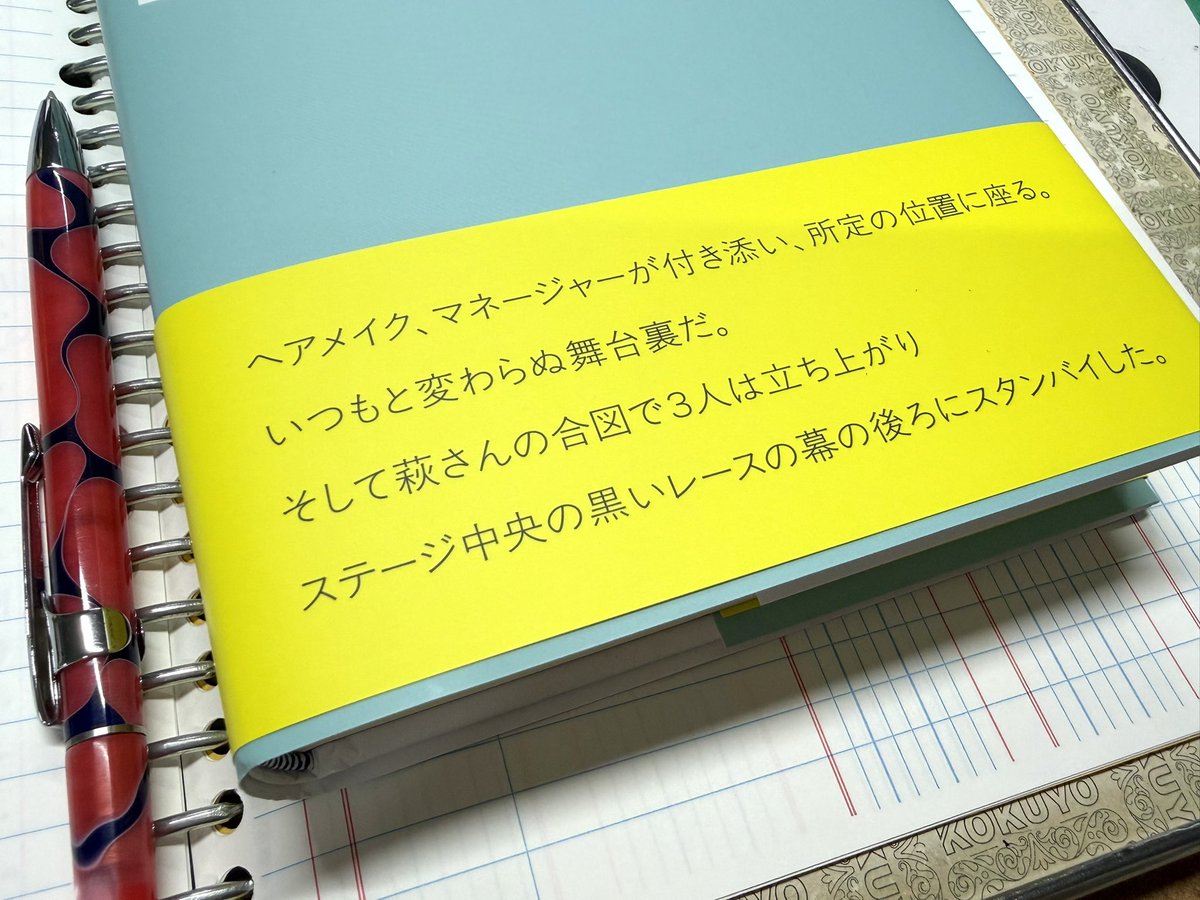 ヘアメイク、マネージャーが付き添い、所定の位置に座る。
いつもと変わらぬ舞台裏だ。
そして萩さんの合図で3人は立ち上がり
ステージ中央の黒いレースの幕の後ろにスタンバイした。
KOKUYO
KOKUYO
KOKUYO
KOKUYO
KU